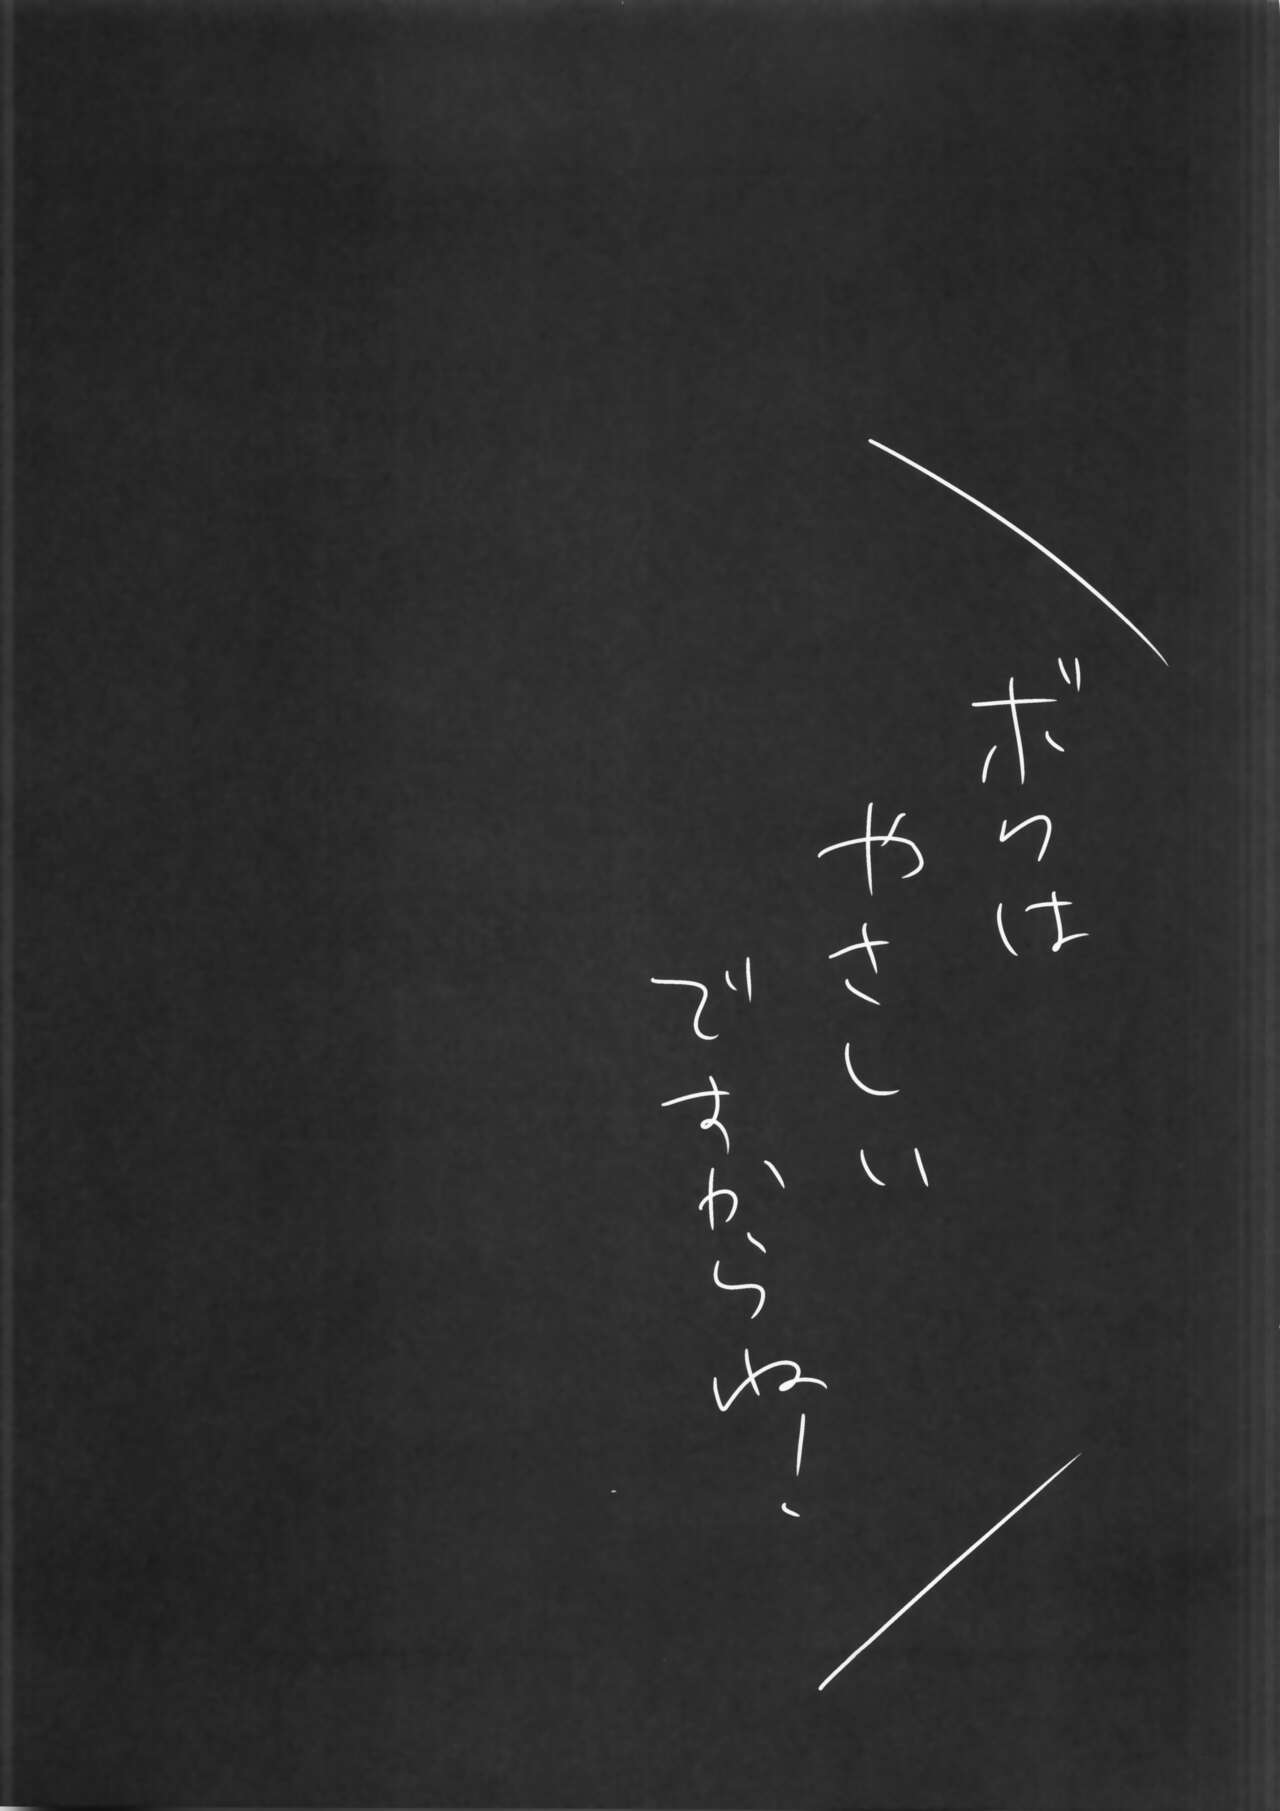 ボクは
やさしい
ですからね!